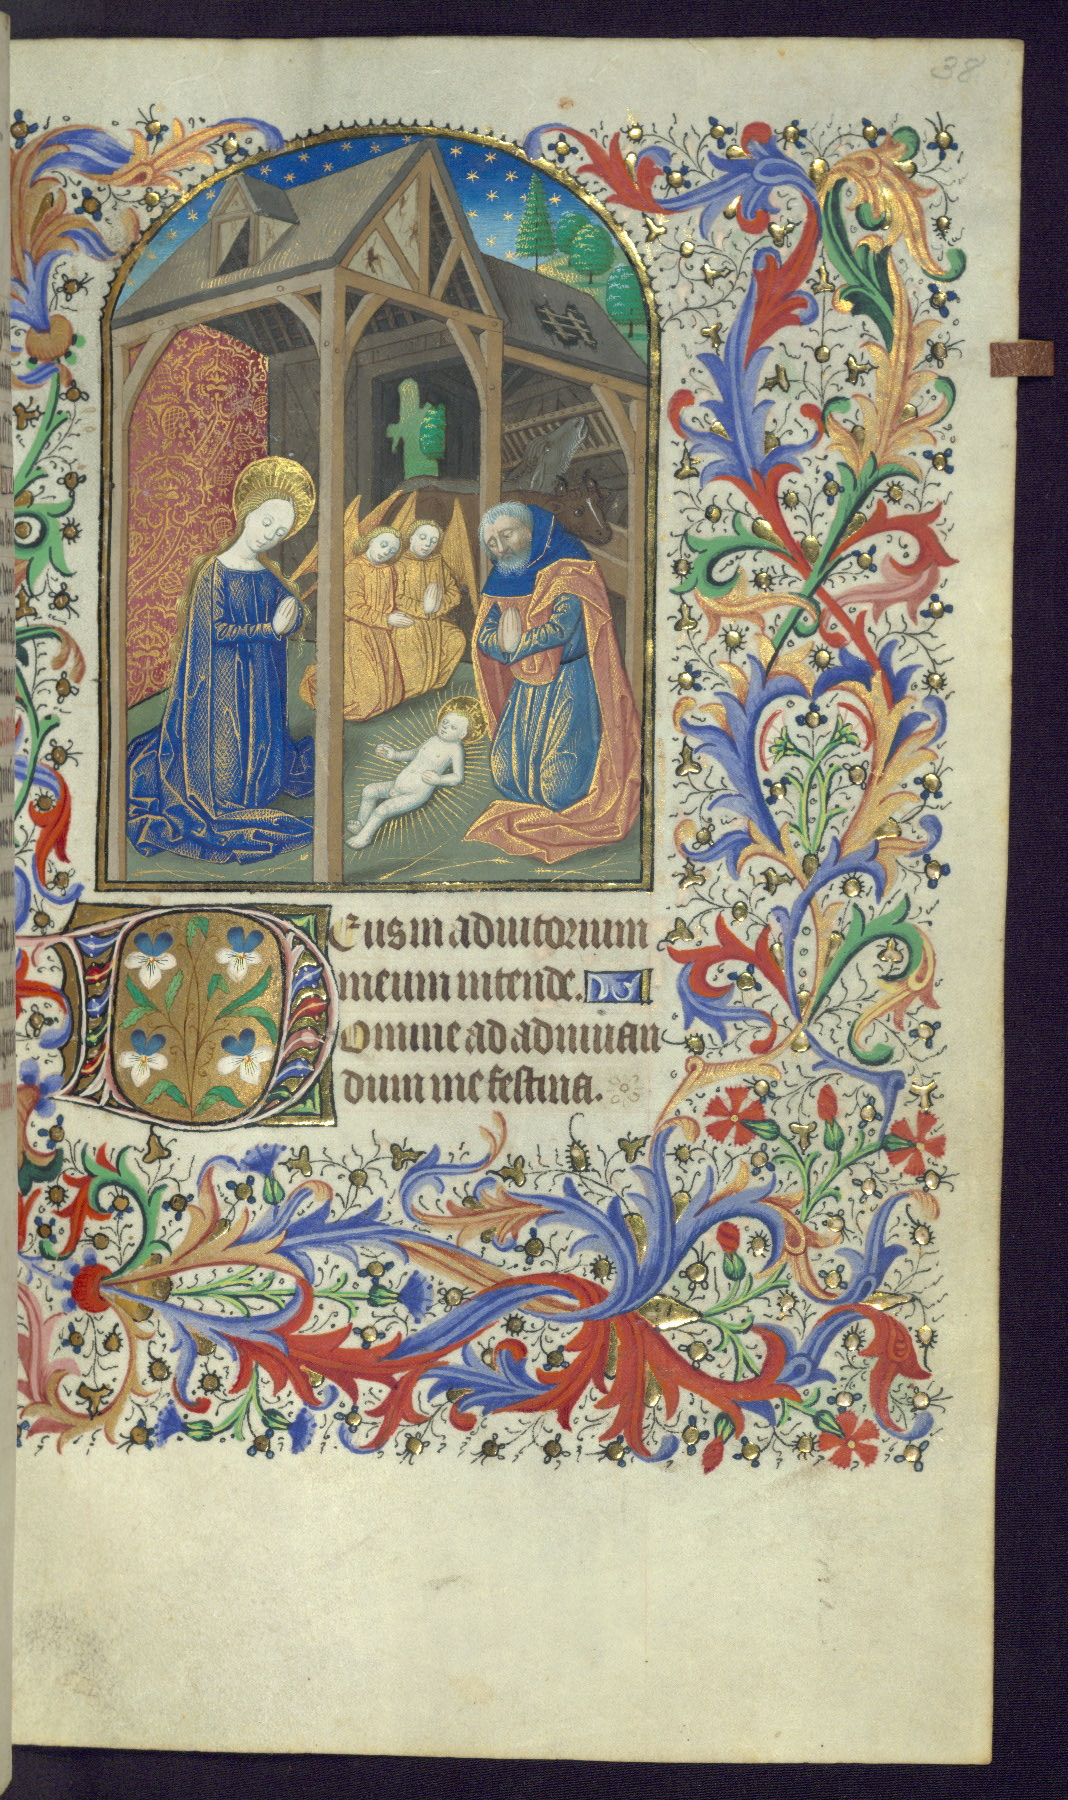 38
Deus in adiutorium
meum intende.
Domine ad adiuuan
dum me festina.